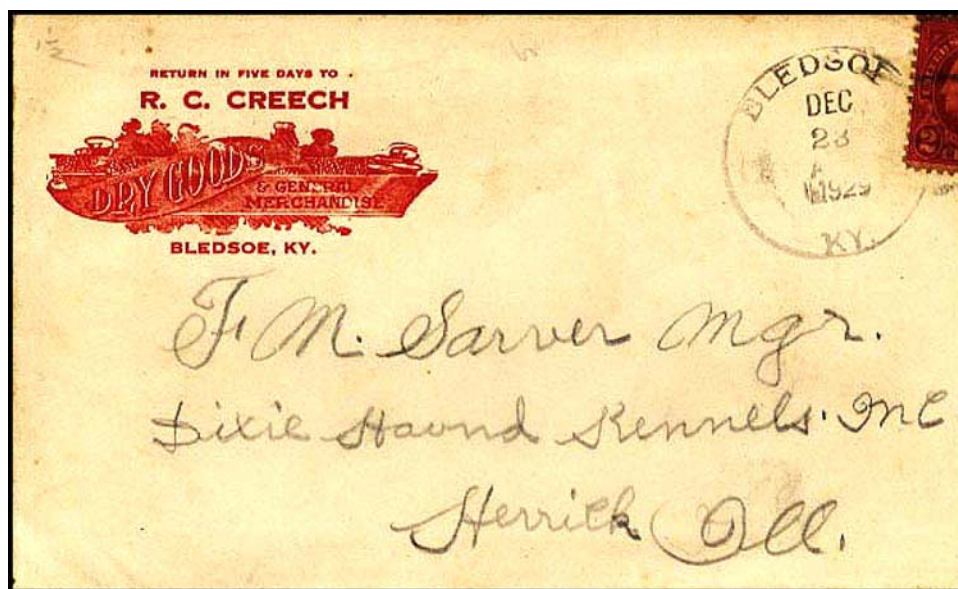 RETURN IN FIVE DAYS TO
R. C. CREECH
DRY GOODS
& GENERAL
MERCHANDISE
BLEDSOE, KY.
BLEDSOE
DEC
1929
KY.
2
F. M. Sarver Mgr.
Dixie Haund Kennels. Inc
Herrick Ill.